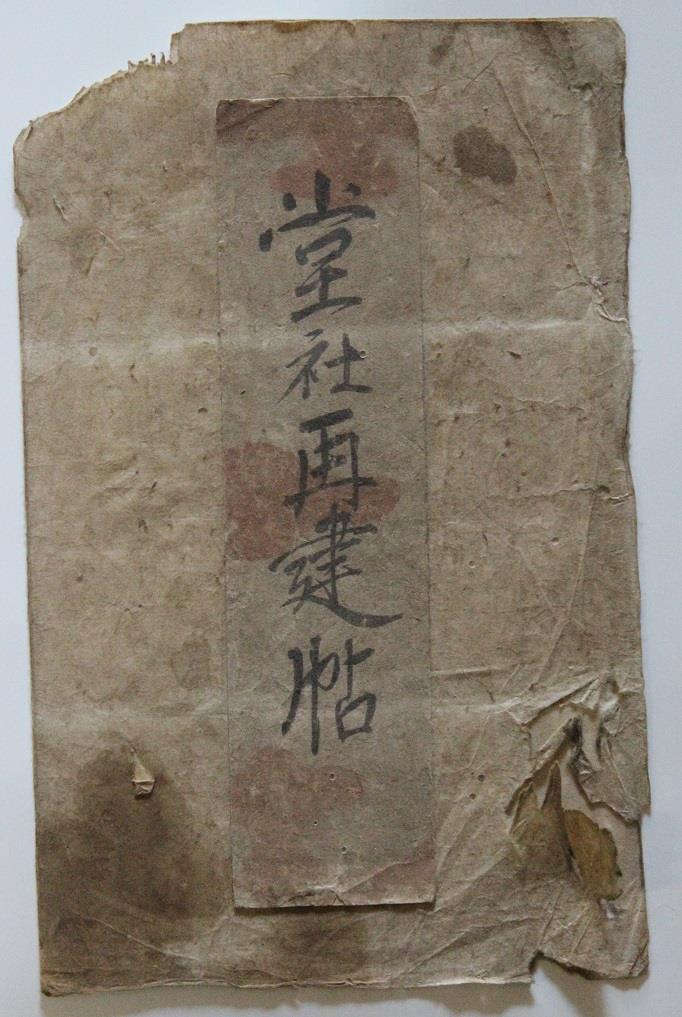 堂社再建帖